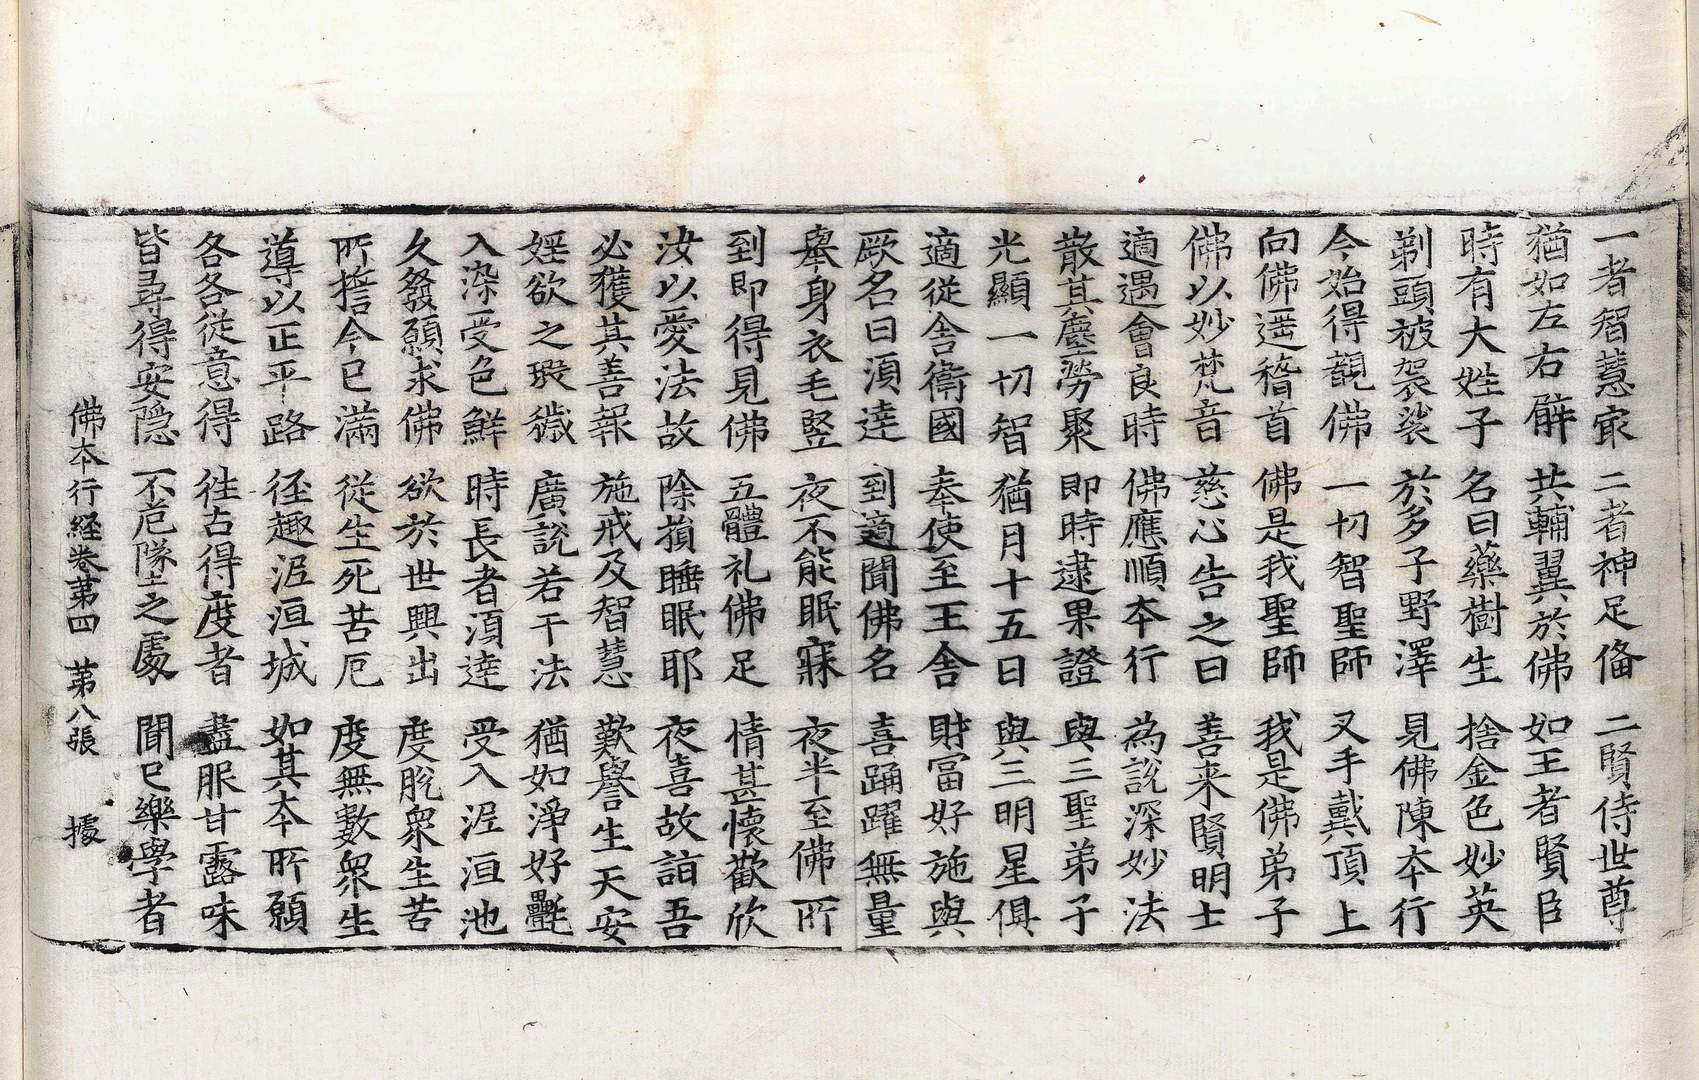 一者智慧㝡 二者神足俻 二賢侍世尊
猶如左右臂 共輔翼於佛 如王者賢臣
時有大姓子 名曰藥樹生 捨金色妙英
剃頭被袈裟 於多子野澤 見佛陳本行
今始得觀佛 一切智聖師 叉手戴頂上
向佛遥稽首 佛是我聖師 我是佛弟子
佛以妙梵音 慈心告之曰 善来賢明士
適遇會良時 佛應順本行 為說深妙法
散其塵勞聚 即時逮果證 與三聖弟子
光顯一切智 猶月十五日 與三明星俱
適從舍衛國 奉使至王舍 財富好施與
厥名曰湏達 到適聞佛名 喜踊躍無量
舉身衣毛竪 夜不能眠寐 夜半至佛所
到即得見佛 五體礼佛足 情甚懷歡欣
汝以愛法故 除損睡眠耶 夜喜故詣吾
必獲其善報 施戒及智慧 歎譽生天安
婬欲之瑕穢 廣說若干法 猶如淨好㲲
入染受色鮮 時長者湏達 受入泥洹池
久發願求佛 欲於世興出 度脫衆生苦
所擔今已滿 從生死苦厄 度無數衆生
導以正平路 徑趣泥洹城 如其本所願
各各從意得 徃古得度者 盡服甘露味
皆尋得安隱 不危墜之處 聞已樂學者
佛本行経卷苐四 苐八張 據